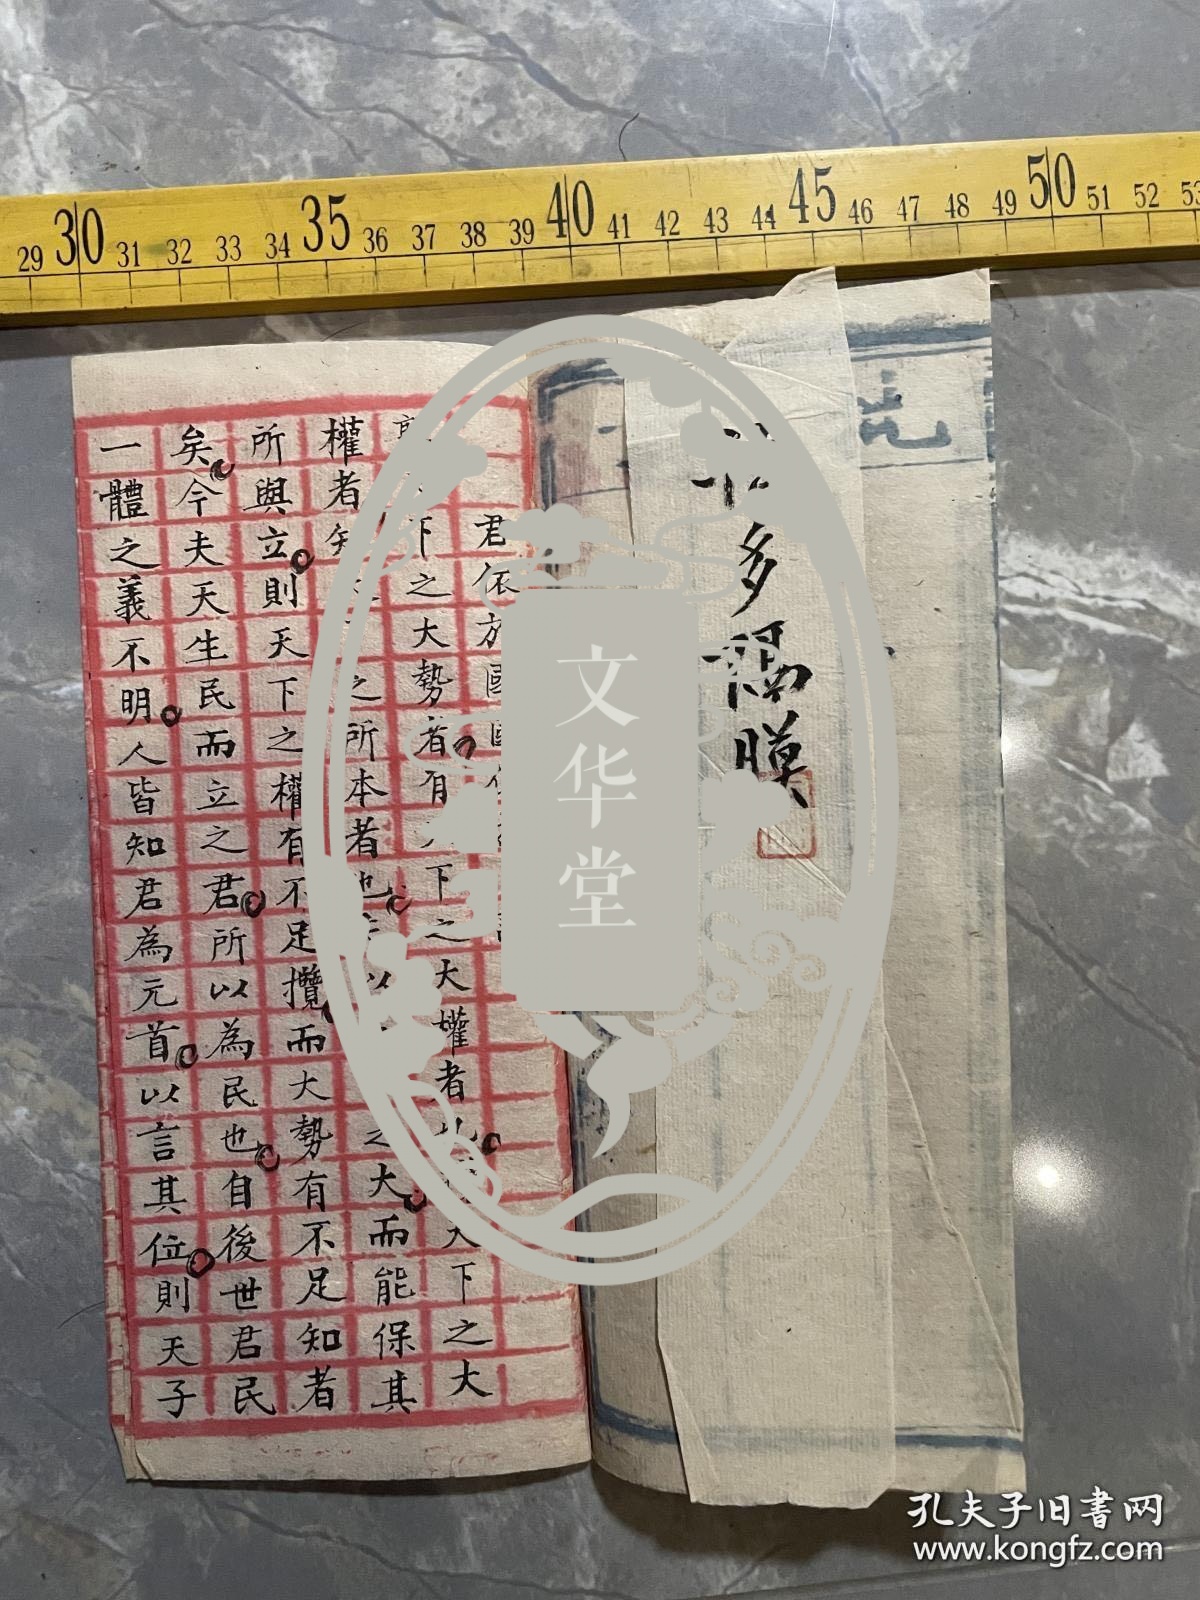 29 30 31 32 33 34 35 36 37 38 39 40 41 42 43 44 45 46 47 48 49 50 51 52 53
多隔膜
君依於國國
下之大勢者有下之大權者天下之大
權者之所本者也以之大而能保其
所與立則天下之權有不足攬而大勢有不足知者
矣今夫天生民而立之君所以為民也自後世君民
一體之義不明人皆知君為元首以言其位則天子
文华堂
孔夫子旧书网
www.kongfz.com